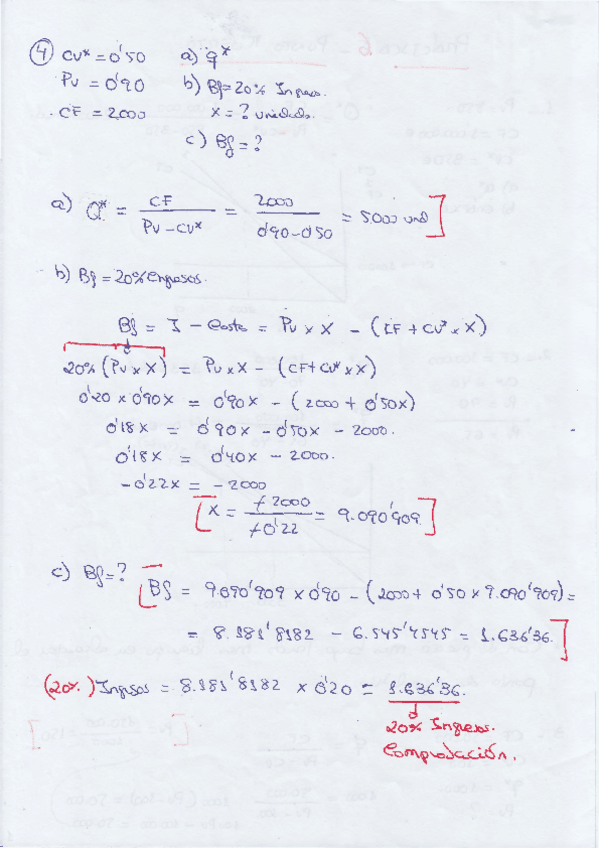 4 CU* = 0'50 a) q*
PU = 0'90 b) Bf = 20% Ingresos.
CF = 2.000 x = ? unidades.
c) Bf = ?
a) Q* = CF / (PU - CU*) = 2000 / (0'90 - 0'50) = 5000 und
b) Bf = 20% Ingresos.
Bf = I - Costo = PU x X - (CF + CU* x X)
20% (PU x X) = PU x X - (CF + CU* x X)
0'20 x 0'90X = 0'90X - (2000 + 0'50X)
0'18X = 0'90X - 0'50X - 2000.
0'18X = 0'40X - 2000.
-0'22X = -2000
X = +2000 / +0'22 = 9.090'909
c) Bf = ? Bf = 9.090'909 x 0'90 - (2000 + 0'50 x 9.090'909) =
= 8.181'8182 - 6.545'4545 = 1.636'36.
(20%) Ingresos = 8.181'8182 x 0'20 = 1.636'36.
20% Ingresos.
Comprobación.